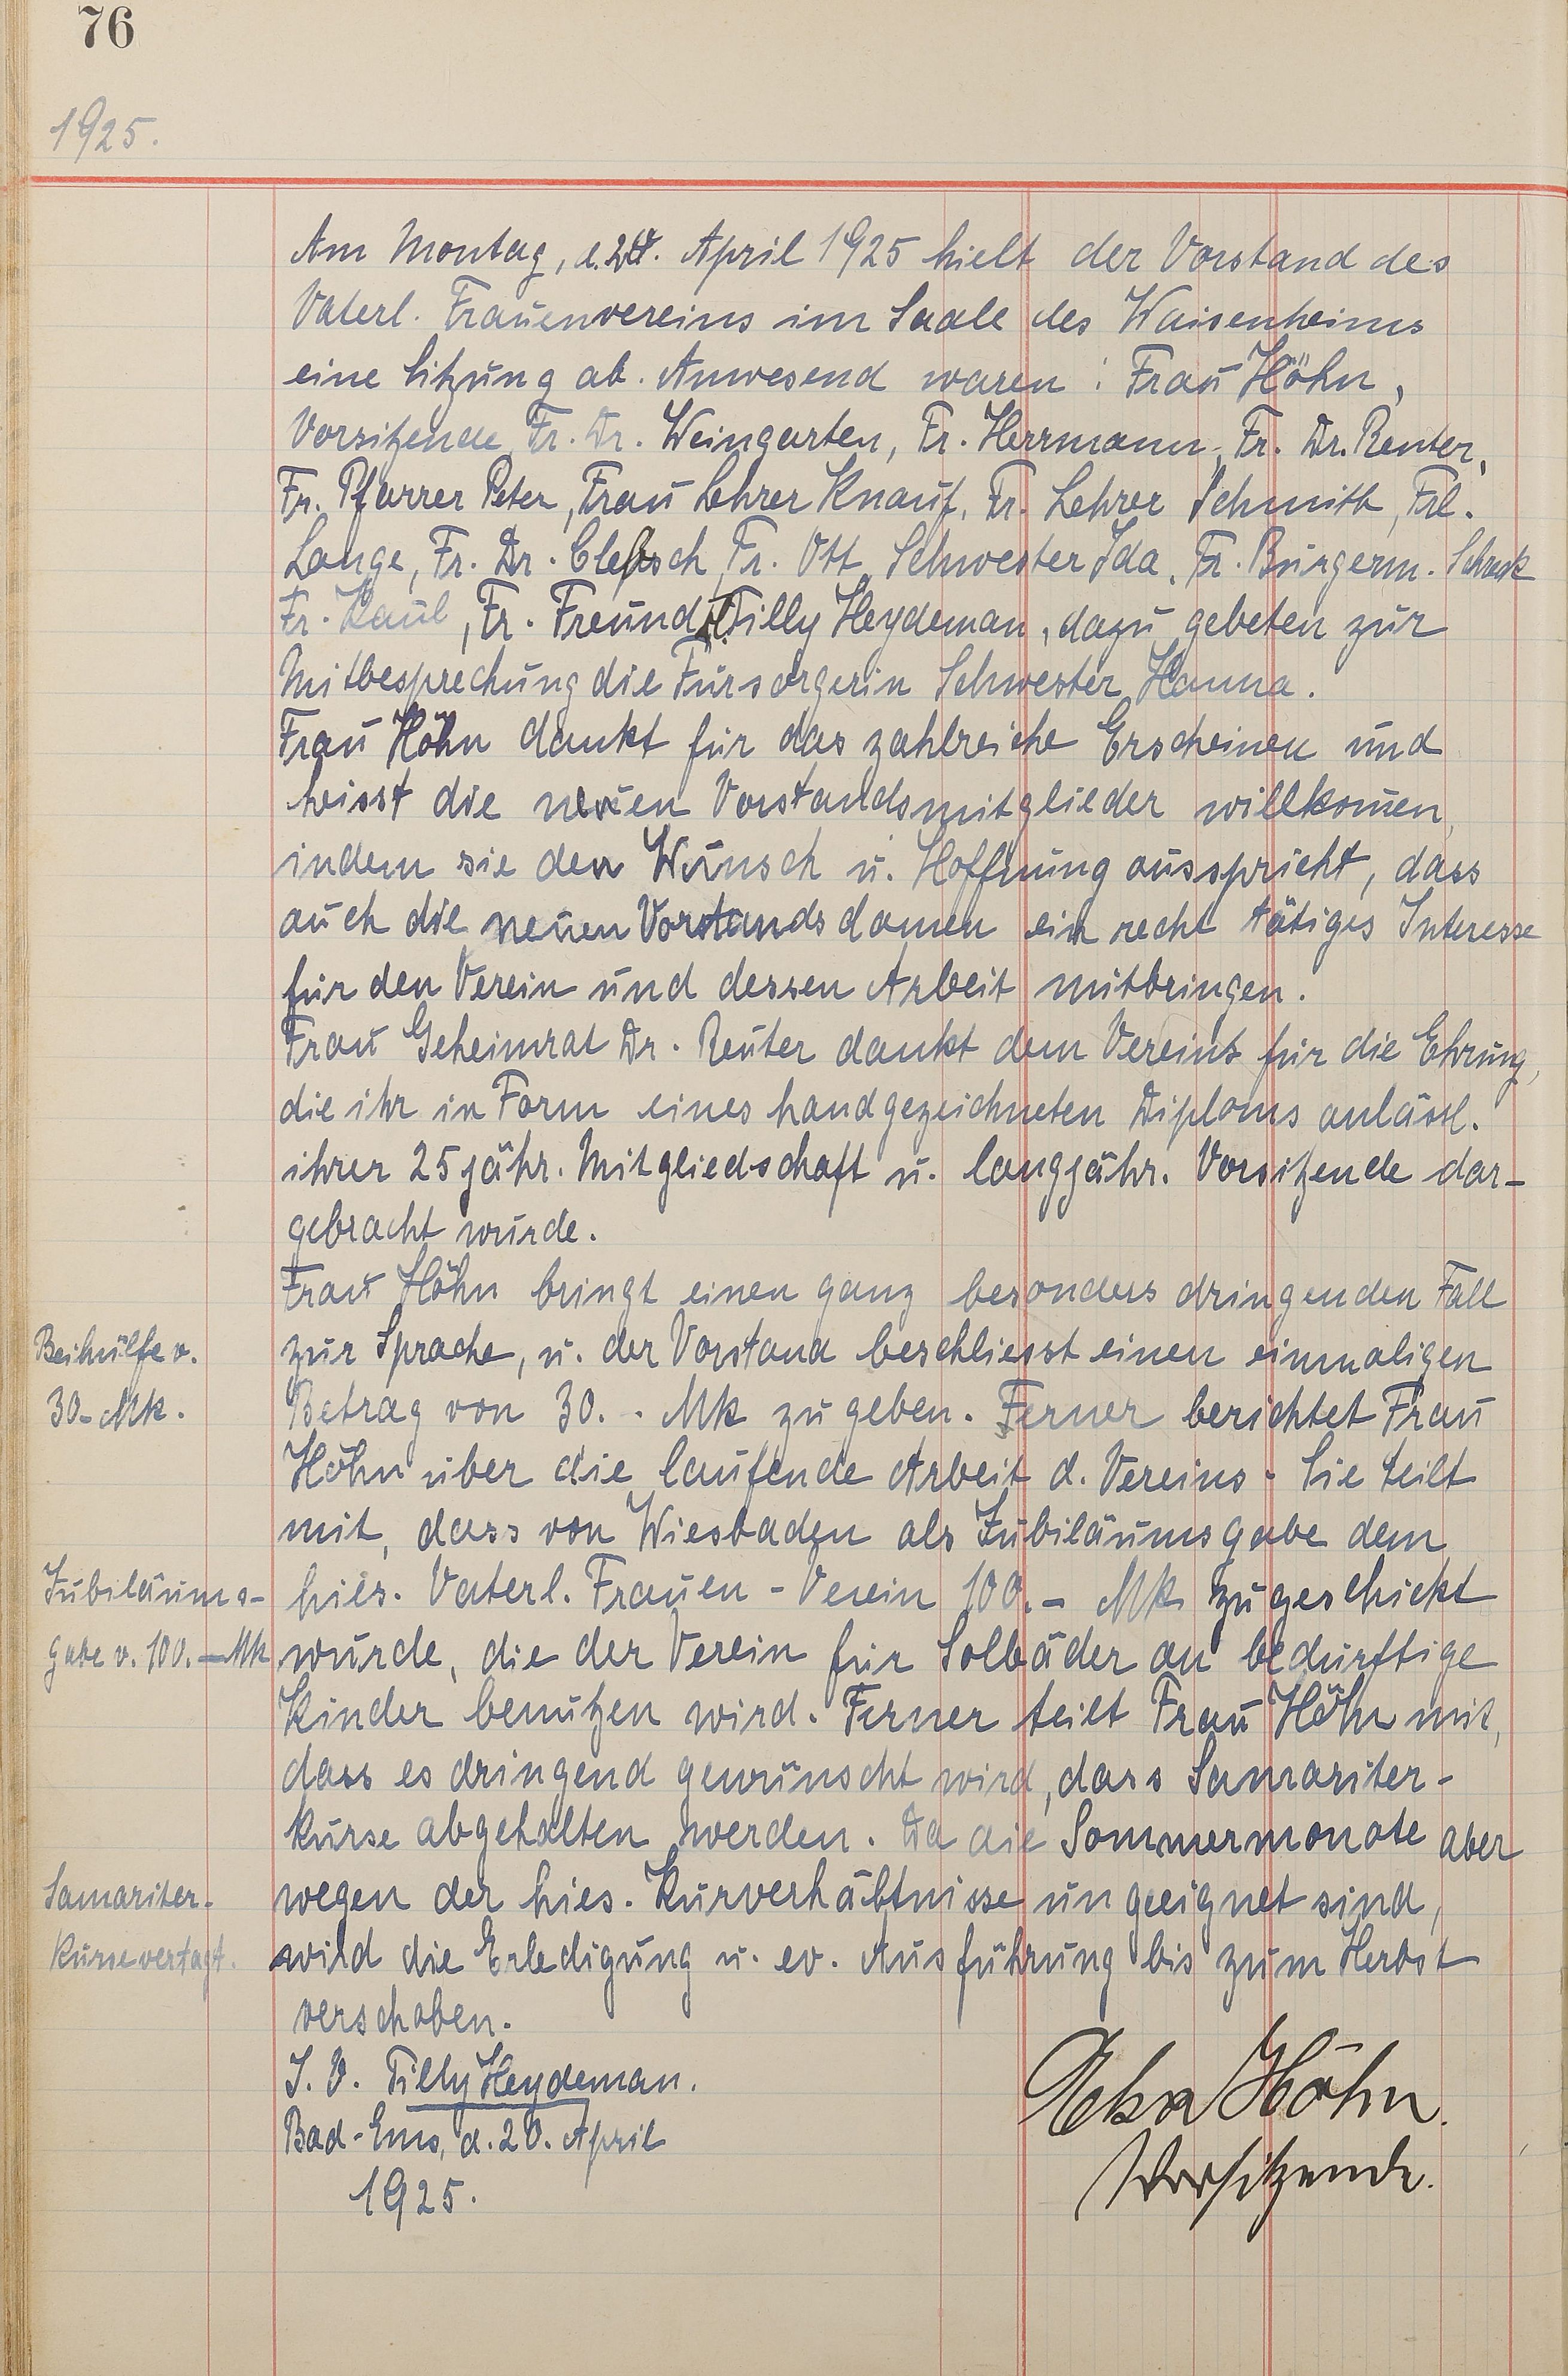 76
1925.
Am Montag, d. 20. April 1925 hielt der Vorstand des
Vaterl. Frauenvereins im Saale des Waisenheims
eine Sitzung ab. Anwesend waren : Frau Höhn,
Vorsitzende, Fr. Dr. Weingarten, Fr. Herrmann, Fr. Dr. Reuter,
Fr. Pfarrer Peter, Frau Lehrer Knauf, Fr. Lehrer Schmitt, Frl.
Lange, Fr. Dr. Fr. Ott, Schwester Ida, Fr. Bürgerm. Schreck
Fr. Kaul, Fr. Freund, Tilly Heydeman, dazu gebeten zur
Mitbesprechung die Fürsorgerin Schwester Hanna.
Frau Höhn dankt für das zahlreiche Erscheinen und
heisst die neuen Vorstandsmitglieder willkom̄en,
indem sie den Wunsch u. Hoffnung ausspricht, dass
auch die neuen Vorstandsdamen ein recht tätiges Interesse
für den Verein und dessen Arbeit mitbringen.
Frau Geheimrat Dr. Reuter dankt dem Vereins für die Ehrung,
die ihr in Form eines handgezeichneten Diploms anlässl.
ihrer 25jähr. Mitgliedschaft u. langjähr. Vorsitzende dar-
gebracht wurde.
Frau Höhn bringt einen ganz besonders dringenden Fall
Beihülfe v.
30.- Mk.
zur Sprache, u. der Vorstand beschliesst einen einmaligen
Betrag von 30.- Mk zu geben. Ferner berichtet Frau
Höhn über die laufende Arbeit d. Vereins. Sie teilt
mit, dass von Wiesbaden als Jubiläumsgabe dem
Jubiläums-
gabe v. 100.- Mk
hies. Vaterl. Frauen-Verein 100.- Mk zugeschickt
wurde, die der Verein für Solbäder an bedürftige
Kinder benutzen wird. Ferner teilt Frau Höhn mit,
dass es dringend gewünscht wird, dass Samariter-
kurse abgehalten werden. Da die Sommermonate aber
Samariter-
kurse vertagt.
wegen der hies. Kurverhältnisse ungeeignet sind,
wird die Erledigung u. ev. Ausführung bis zum Herbst
verschoben.
I. V. Tilly Heydeman.
Bad-Ems, d. 20. April
1925.
Höhn.
Vorsitzende.